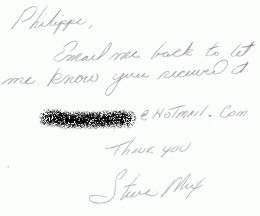 Philippe,
Email me back to let
me know you recieved it.
@ HOTMAIL. Com
THANK YOU
Steve Mix